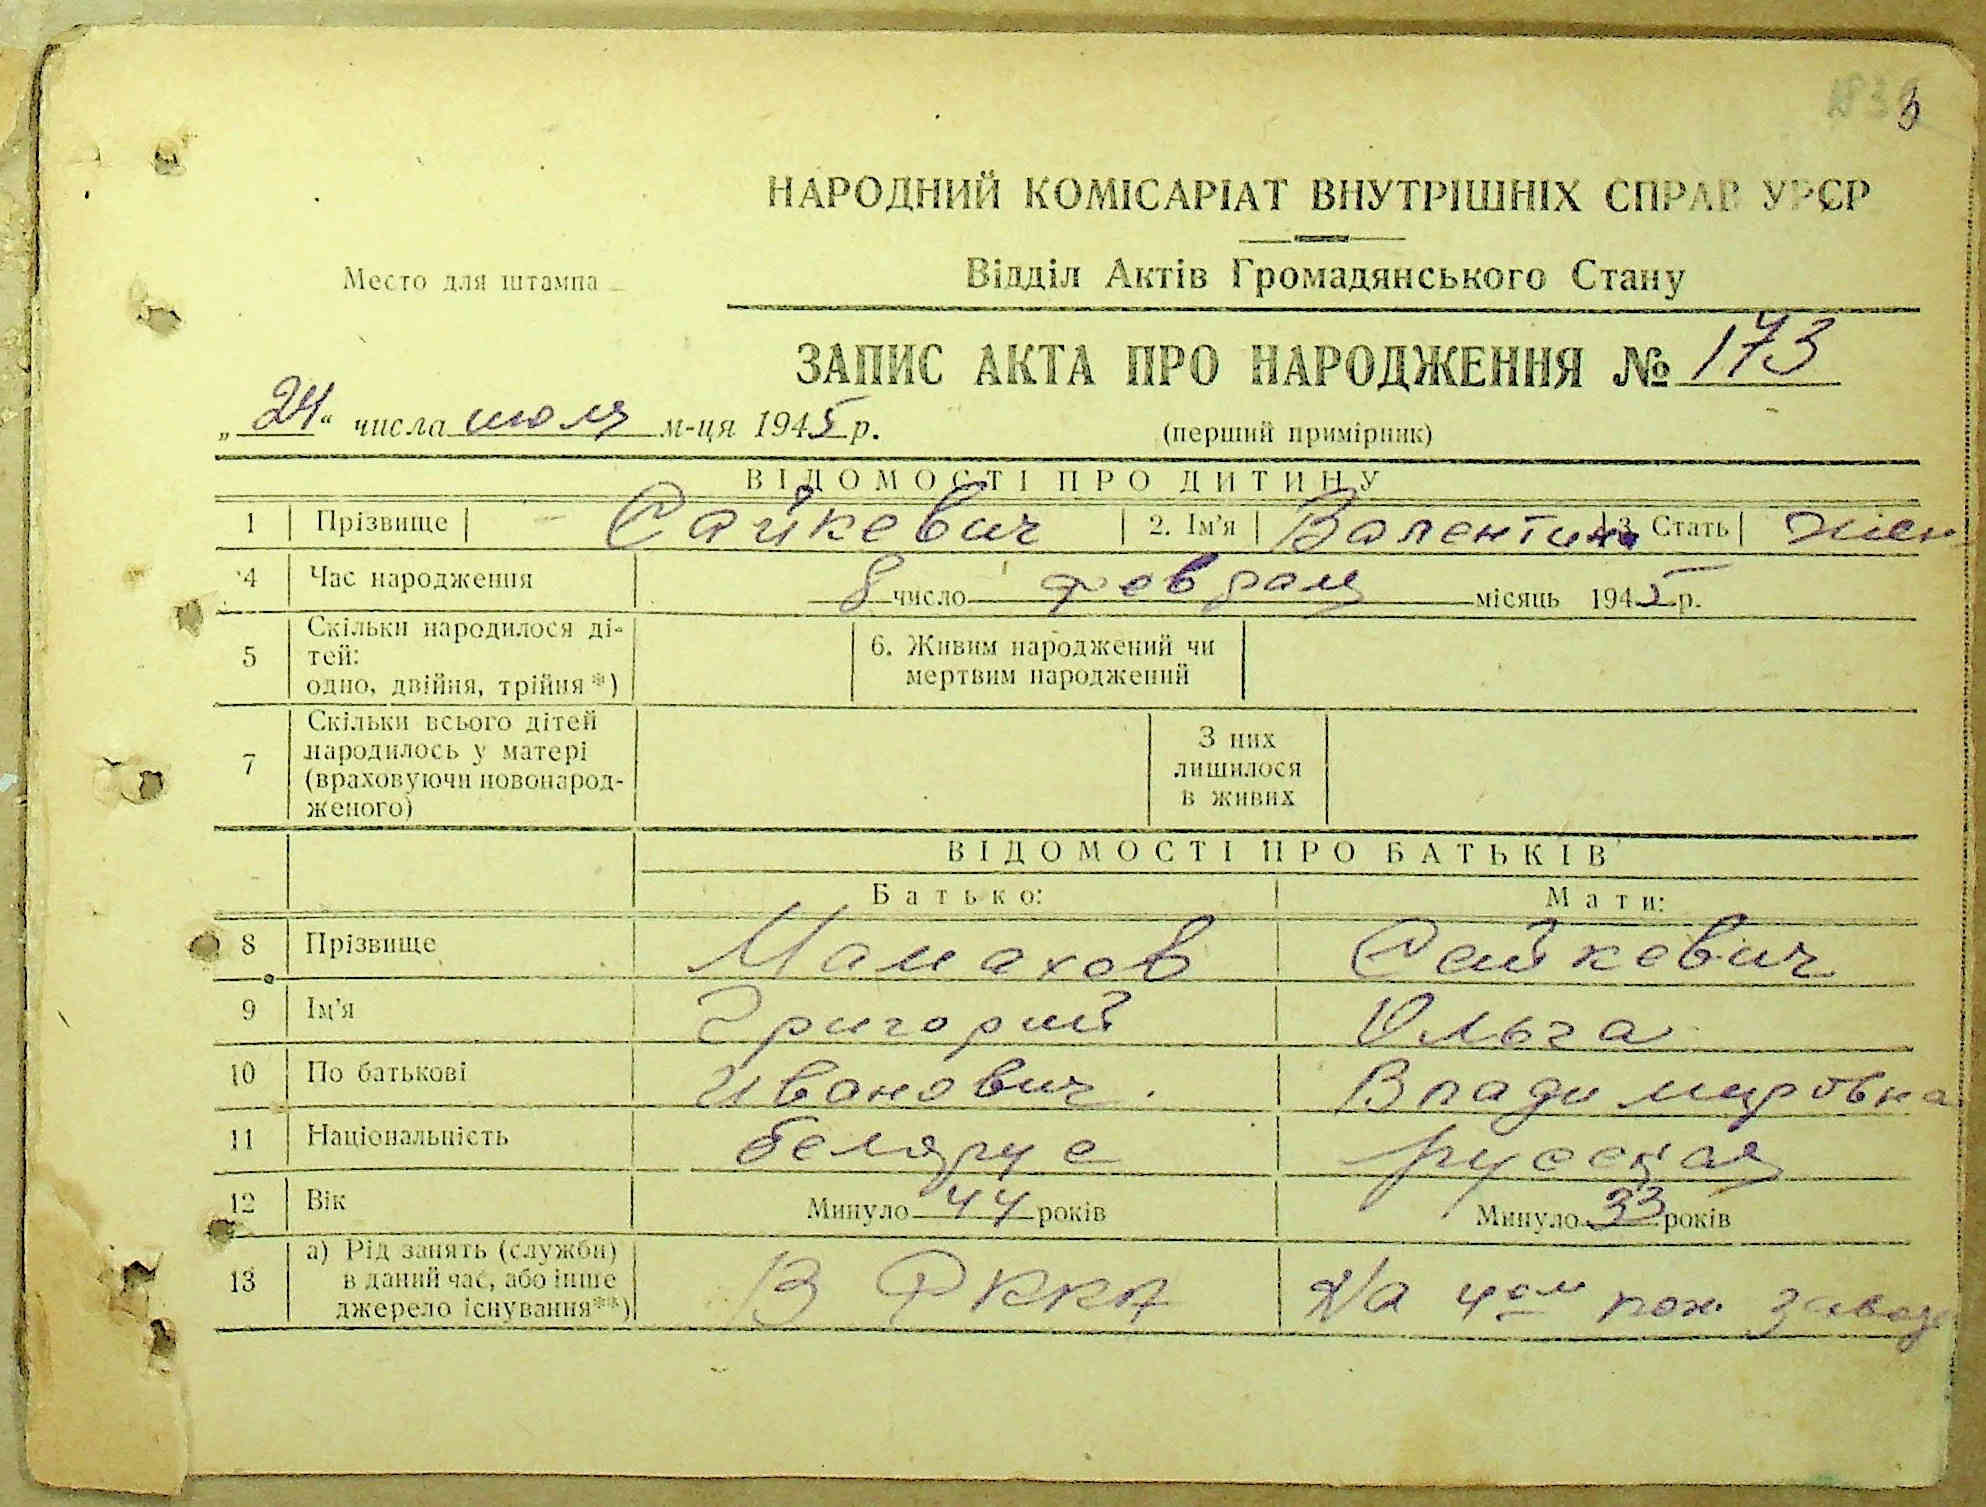 3
НАРОДНИЙ КОМІСАРІАТ ВНУТРІШНІХ СПРАВ УРСР
Место для штампа
Відділ Актів Громадянського Стану
ЗАПИС АКТА ПРО НАРОДЖЕННЯ № 173
„24“ числа июля м-ця 1945 р.
(перший примірник)
ВІДОМОСТІ ПРО ДИТИНУ
1 Прізвище Сайкевич 2. Ім'я Валентина 3. Стать жен
4 Час народження 8 число февраля місяць 1945 р.
5 Скільки народилося ді-
тей:
одно, двійня, трійня*)
6. Живим народжений чи
мертвим народжений
7 Скільки всього дітей
народилось у матері
(враховуючи новонарод-
женого)
З них
лишилося
в живих
ВІДОМОСТІ ПРО БАТЬКІВ
Батько: Мати:
8 Прізвище Малахов Сайкевич
9 Ім'я Григорий Ольга
10 По батькові Иванович Владимировна
11 Національність белярус русская
12 Вік Минуло 44 років Минуло 33 років
13 а) Рід занять (служби)
в даний час, або інше
джерело існування**)
В РККА На 4ом завода